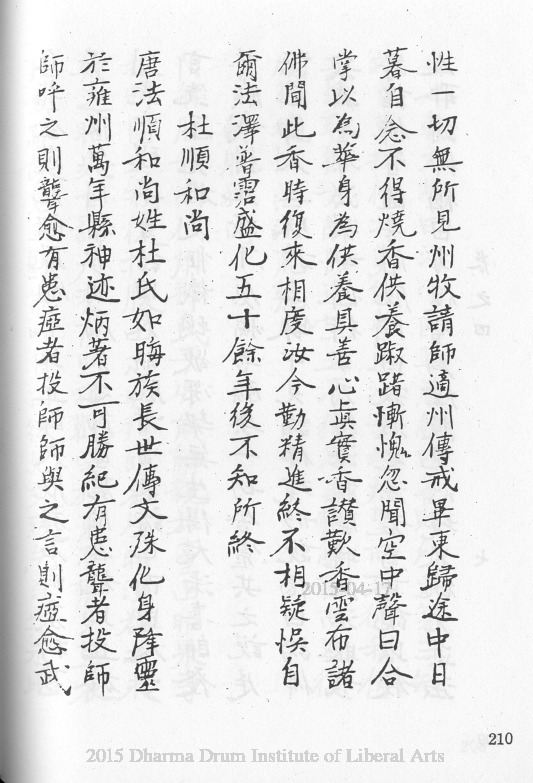 性一切無所見州牧請師適州傳戒畢東歸途中日
暮自念不得燒香供養踧踖慚愧忽聞空中聲曰合
掌以為華身為供養具善心真實香讃歎香雲布諸
佛聞此香時復來相度汝今勤精進終不相疑悞自
爾法澤普霑盛化五十餘年後不知所終
杜順和尚
唐法順和尚姓杜氏如晦族長世傳文殊化身降靈
於雍州萬年縣神迹炳著不可勝紀有患聾者投師
師呼之則聾愈有患瘂者投師師與之言則瘂愈武
2015-04-17
210
2015 Dharma Drum Institute of Liberal Arts